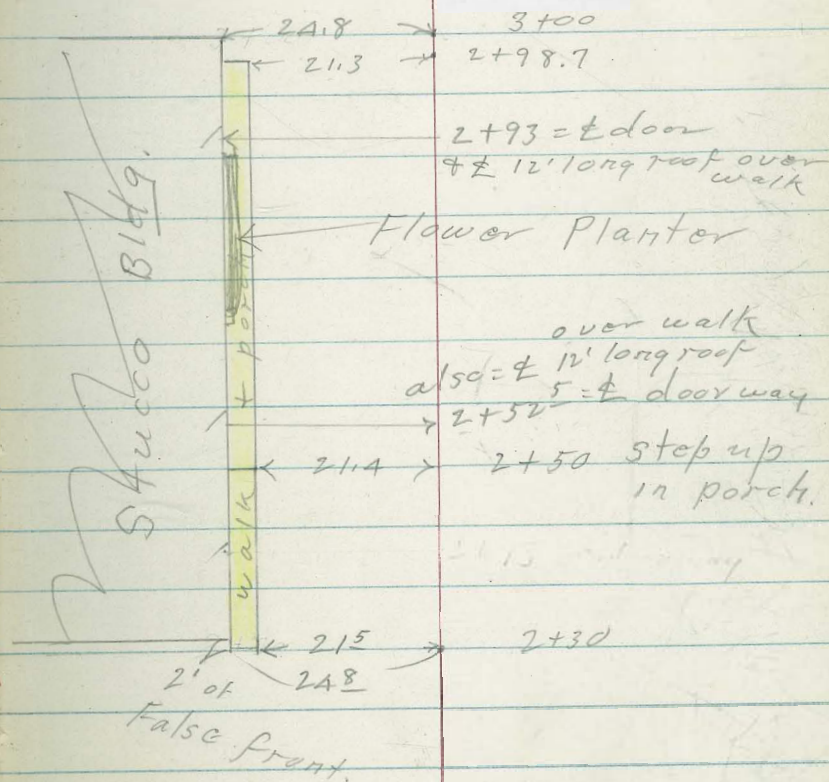 24.8 3+00
21.3 2+98.7
2+93 = ℄ door
+ ℄ 12' long roof over
walk
Flower Planter
Stucco Bldg.
walk + porch
over walk
also = ℄ 12' long roof
2+52⁵ = ℄ doorway
21.4 2+50 step up
in porch.
21⁵ 2+30
24⁸
2' of
False front.